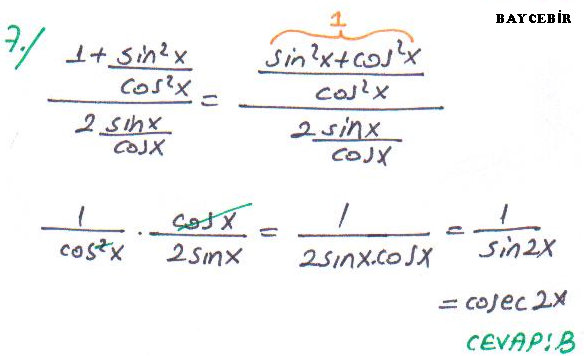 BAYCEBİR
7./
1
1 + sin²x/cos²x / 2 sinx/cosx = sin²x+cos²x/cos²x / 2 sinx/cosx
1/cos²x · cosx/2sinx = 1/2sinx.cosx = 1/sin2x
= cosec2x
CEVAP:B